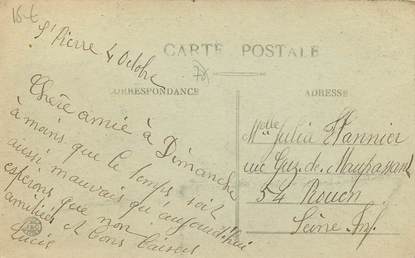 15-t
St Pierre 4 Octobre
CARTE POSTALE
CORRESPONDANCE
ADRESSE
Chère amie à Dimanche
à moins que le temps soit
aussi mauvais qu'aujourd'hui
espérons que non
amitiés et bons baisers
Lucie
Melle Julia Vannier
rue Guy de Maupassant
54 Rouen
Seine Inf.